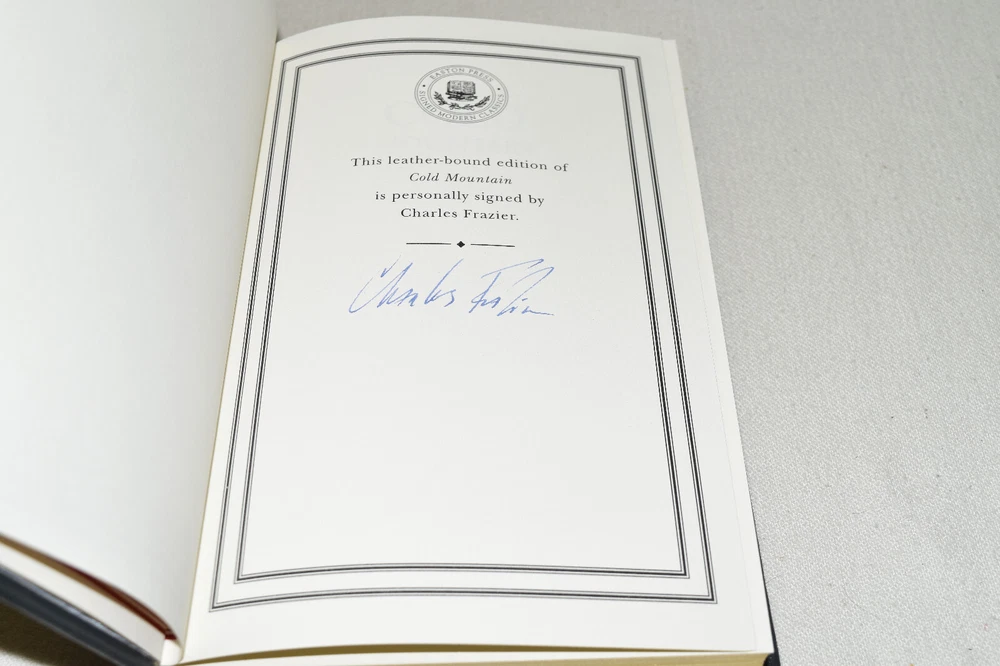 EASTON PRESS
SIGNED MODERN CLASSICS
This leather-bound edition of
Cold Mountain
is personally signed by
Charles Frazier.
Charles Frazier